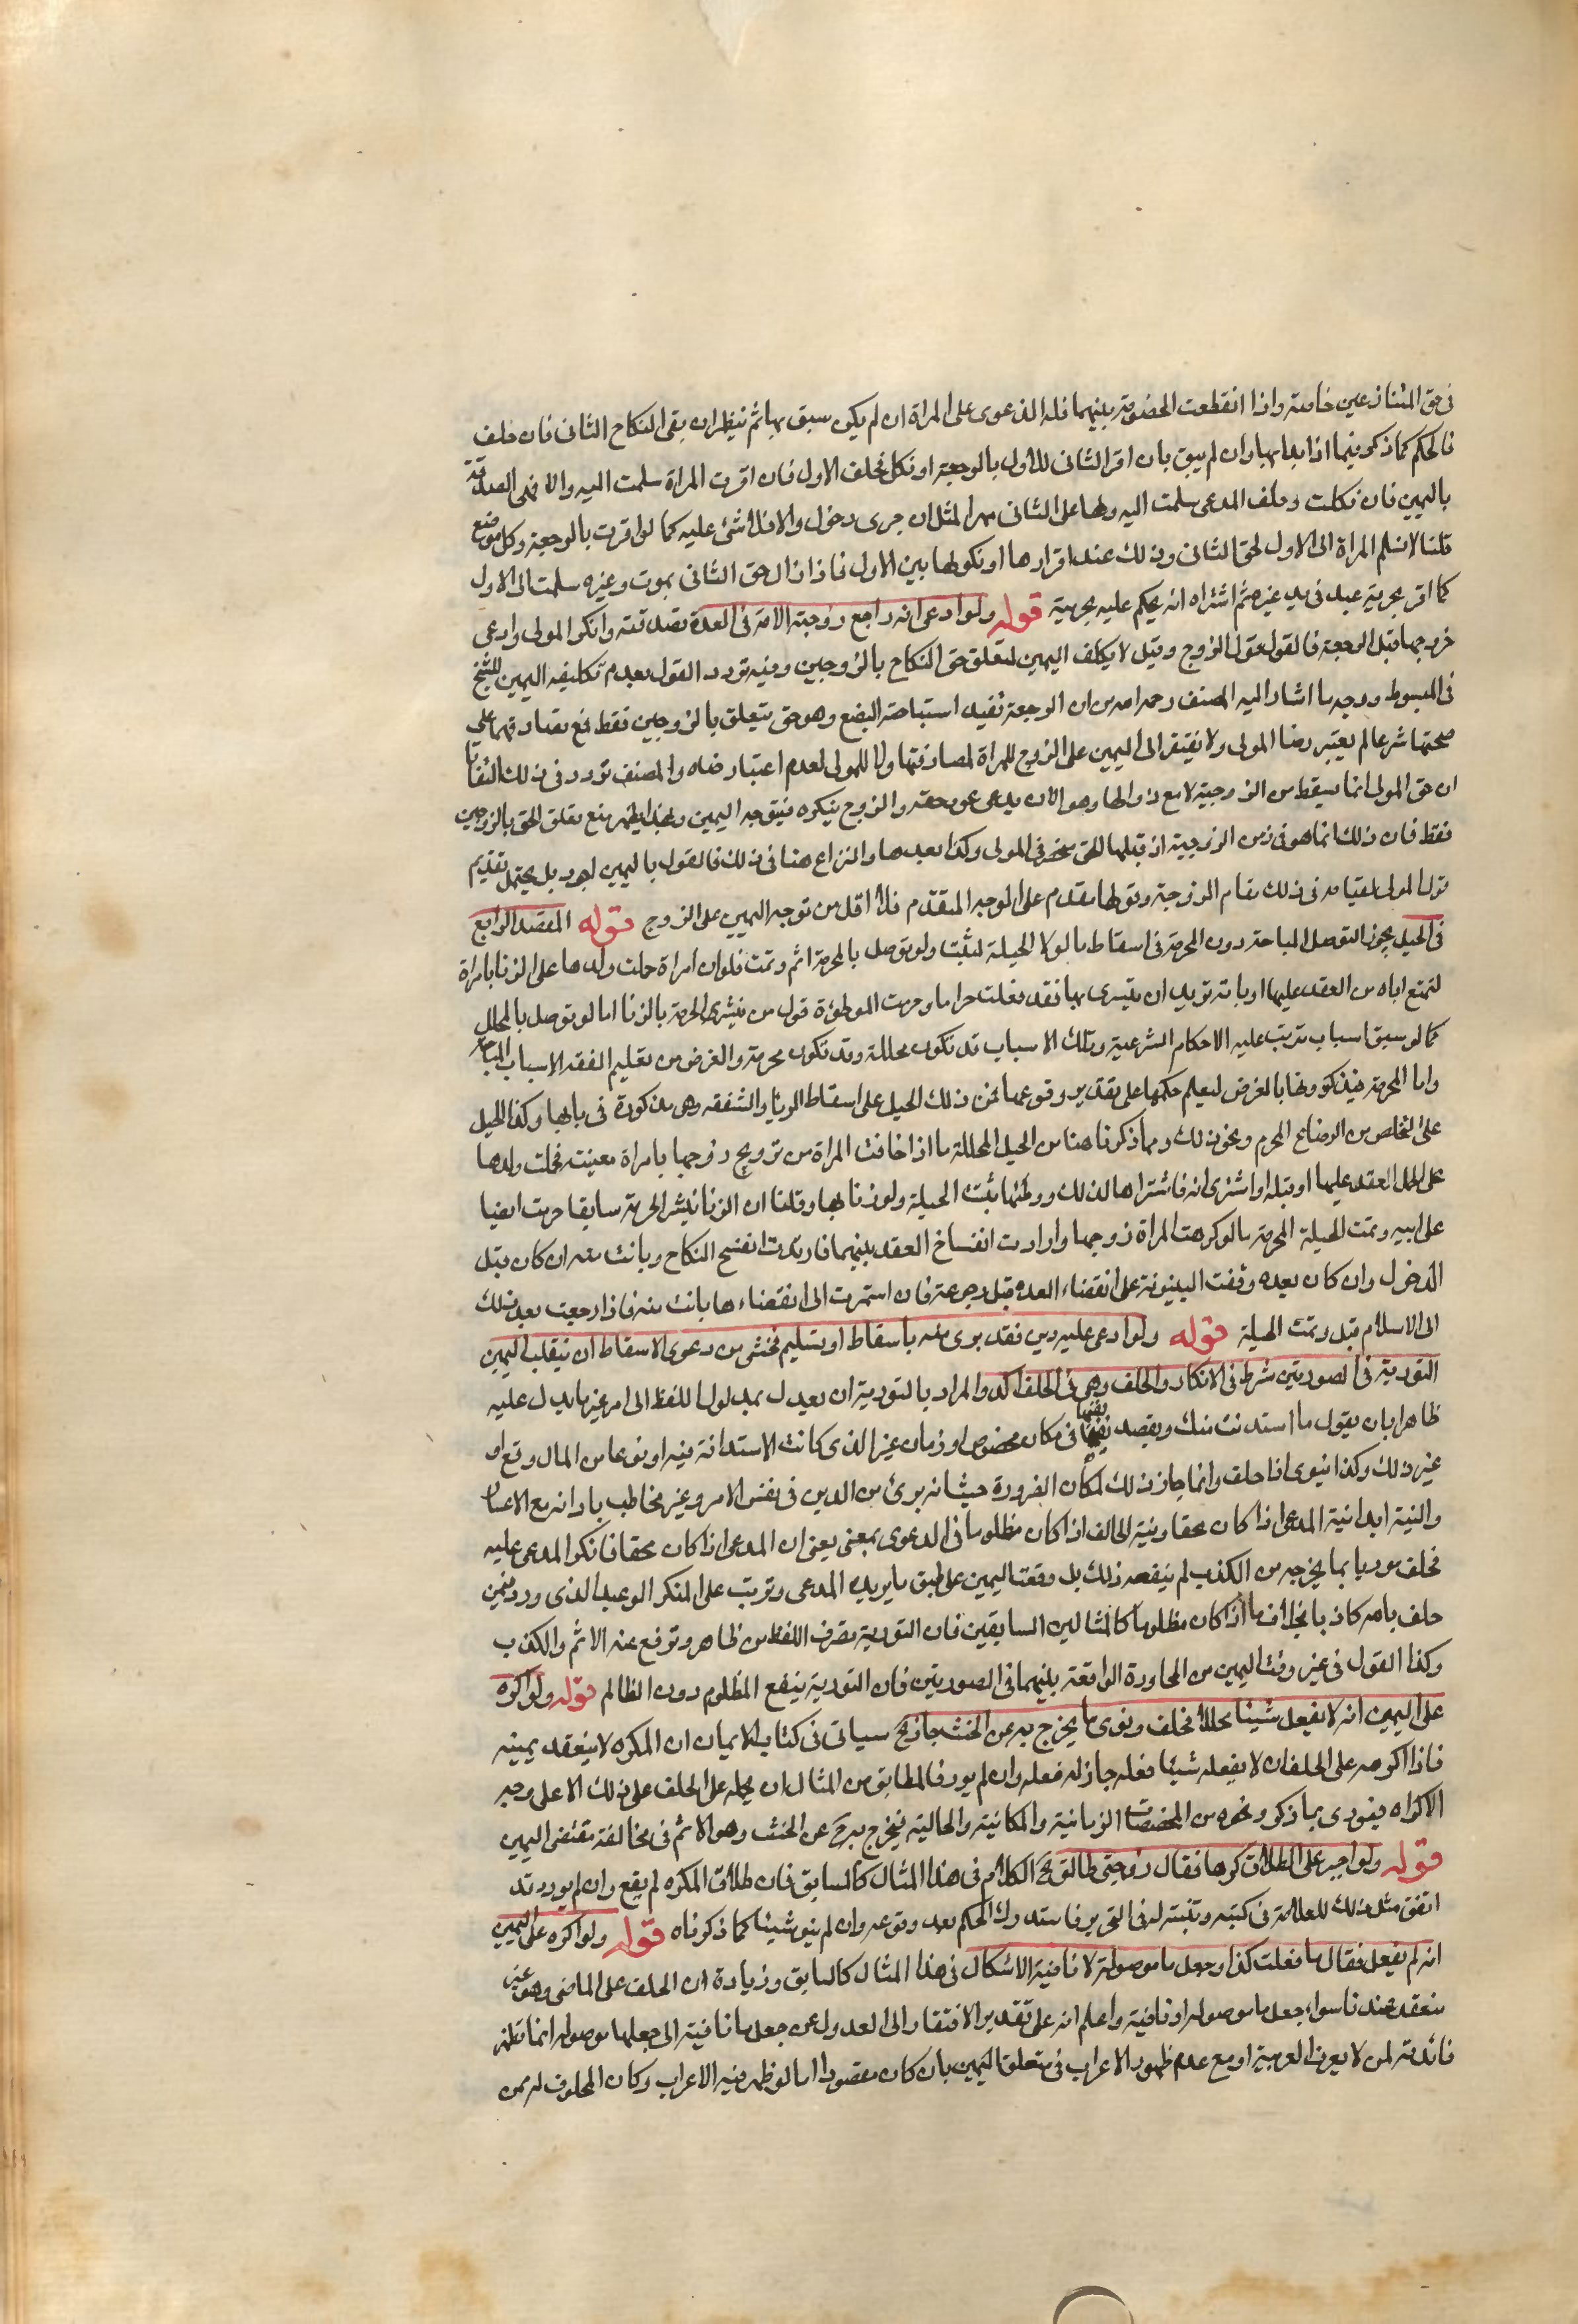 فى حق المتنازعين خاصة واذا انقطعت الخصومة بينهما فله الدعوى على المراة ان لم يكن سبق بها ثم ينظر ان بقى النكاح الثانى فان حلف
فالحكم كما ذكر فيما اذا بدا بها وان لم يبق بان اقر الثانى للاول بالرجعة او نكل فحلف الاول فان اقرت المراة سلمت اليه والا فهى المصدقة
باليمين فان نكلت وحلف المدعى سلمت اليه ولها على الثانى مهر المثل ان جرى دخول والا فلا شئ عليه كما لو اقرت بالرجعة وكل موضع
قلنا لا نسلم المراة الى الاول لحق الثانى وذلك عند اقرارها او نكولها بين الاول فاذا زال حق الثانى بموت وغيره سلمت الى الاول
كما اقر بحرية عبد فى يد غيره ثم اشتراه انه يحكم عليه بحريته قوله ولو ادعى انه راجع زوجته الامة فى العدة فصدقته وانكر المولى وادعى
خروجها قبل الرجعة فالقول قول الزوج وقيل لا يكلف اليمين لتعلق حق النكاح بالزوجين وفيه تردد القول بعدم تكليفه اليمين للشيخ
فى المبسوط ووجه ما اشار اليه المصنف رحمه الله من ان الرجعة تفيد استباحة البضع وهو حق يتعلق بالزوجين فقط فمع تصادقهما على
صحتها شرعا لم يعتبر رضا المولى ولا يفتقر الى اليمين على الزوج للمراة لمصادقتها ولا للمولى لعدم اعتبار رضاه والمصنف تردد فى ذلك التفاتا
ان حق المولى انما يسقط من الزوجية لا مع زوالها وهو الان يدعى عود حقه والزوج ينكره فيتوجه اليمين وبهذا يظهر منع تعلق الحق بالزوجين
فقط فان ذلك انما هو فى زمن الزوجية اذ قبلها الحق منحصر فى المولى وكذا بعدها والنزاع هنا فى ذلك فالقول باليمين اجود بل يحتمل تقديم
قول المولى لقيامه فى ذلك مقام الزوجة وقولها مقدم على الوجه المتقدم فلا اقل من توجه اليمين على الزوج قوله المقصد الرابع
فى الحيل يجوز التوصل المباحة دون المحرمة فى اسقاط ما لولا الحيلة لثبت ولو توصل بالمحرمة اثم وتمت فلو ان امراة حملت ولدها على الزنا بامراة
لتمنع اباه من العقد عليها او بامة تريد ان يتسرى بها فقد فعلت حراما وحرمت الموطوءة قول من ينشر الحرمة بالزنا اما لو توصل بالمحلل
كما لو سبق اسباب تترتب عليه الاحكام الشرعية وتلك الاسباب قد تكون محللة وقد تكون محرمة والغرض من تعليم الفقه الاسباب المباحة
واما المحرمة فيذكرونها بالعرض ليعلم حكمها على تقدير وقوعها فمن ذلك الحيل على اسقاط الربا والشفعة وهى مذكورة فى بابها وكذا الحيل
على التخلص من الرضاع المحرم ونحو ذلك ومما ذكرنا هنا من الحيل المحللة ما اذا خافت المراة من تزويج زوجها بامراة معينة فحملت ولدها
على العقد عليها او قبله او اشترى امة فاشتراها لذلك ووطئها تثبت الحيلة ولو زنا بها وقلنا ان الزنا ينشر الحرمة سابقا حرمت ايضا
على ابيه وتمت الحيلة المحرمة ما لو كرهت المراة زوجها وارادت انفساخ العقد بينهما فارتدت انفسخ النكاح وبانت منه ان كان قبل
الدخول وان كان بعده وقفت البينونة على انقضاء العدة قبل رجوعه فان استمرت الى انقضاءها بانت منه فاذا رجعت بعد ذلك
الى الاسلام قبل وتمت الحيلة قوله ولو ادعى عليه دين فقد برى منه باسقاط او تسليم فخشى من دعوى الاسقاط ان ينقلب اليمين
التورية فى الصورتين شرط فى الانكار والحلف وهى فى الحلف اكد والمراد بالتورية ان يعدل بمدلول اللفظ الى امر غير ما يدل عليه
ظاهرا بان يقول ما استدنت منك ويقصد نفيها فى مكان مخصوص او زمان غير الذى كانت الاستدانة فيه او نوعا من المال وقع او
غير ذلك وكذا ينوى اذا حلف وانما جاز ذلك لمكان الضرورة حيث انه برئ من الدين فى نفس الامر وغير مخاطب بادائه مع الاعسار
والنية ابدا نية المدعى اذا كان محقا ونية الحالف اذا كان مظلوما فى الدعوى بمعنى يعنى ان المدعى اذا كان محقا فانكر المدعى عليه
فحلف موريا بما يخرجه من الكذب لم ينفعه ذلك بل وقعت اليمين على طبق ما يريده المدعى وترتب على المنكر الوعيد الذى ورد فيمن
حلف بالله كاذبا بخلاف ما اذا كان مظلوما كالمثالين السابقين فان التورية تصرف اللفظ من ظاهره وترفع عنه الاثم والكذب
وكذا القول فى غير وقت اليمين من المحاورة الواقعة بينهما فى الصورتين فان التورية ينفع المظلوم دون الظالم قوله ولو اكره
على اليمين انه لا يفعل شيئا محللا فحلف ونوى ما يخرج به عن الحنث جاز الخ سياتى فى كتاب الايمان ان المكره لا ينعقد يمينه
فاذا اكرهه على الحلف ان لا يفعله شيئا فعله جاز له فعله وان لم يور فالمطابق من المثال ان يحمله على الحلف على ذلك الا على وجه
الاكراه فيورى بما ذكر ونحوه من المخصصات الزمانية والمكانية والحالية فيخرج به ح عن الحنث وهو الاثم فى مخالفة مقتضى اليمين
قوله ولو اجبر على الطلاق كرها فقال زوجتى طالق الخ الكلام فى هذا المثال كالسابق فان طلاق المكره لم يقع وان لم يور وقد
اتفق مثل ذلك للعلامة فى كتبه وتنبه له فى التحرير فاستدرك الحكم بعد وقوعه وان لم ينو شيئا كما ذكرناه قوله ولو اكره على اليمين
انه لم يفعل فقال ما فعلت كذا وجعل ما موصولة لا نافية الاشكال فى هذا المثال كالسابق وزيادة ان الحلف على الماضى وهو غير
منعقد عندنا سواء جعل ما موصولة او نافية واعلم انه على تقدير الافتقار الى العدول عن جعل ما نافية الى جعلها موصولة انما تظهر
فائدته لمن لا يعرف العربية او مع عدم ظهور الاعراب فى متعلق اليمين بان كان مقصورا اما لو ظهر فيه الاعراب وكان المحلوف له ممن